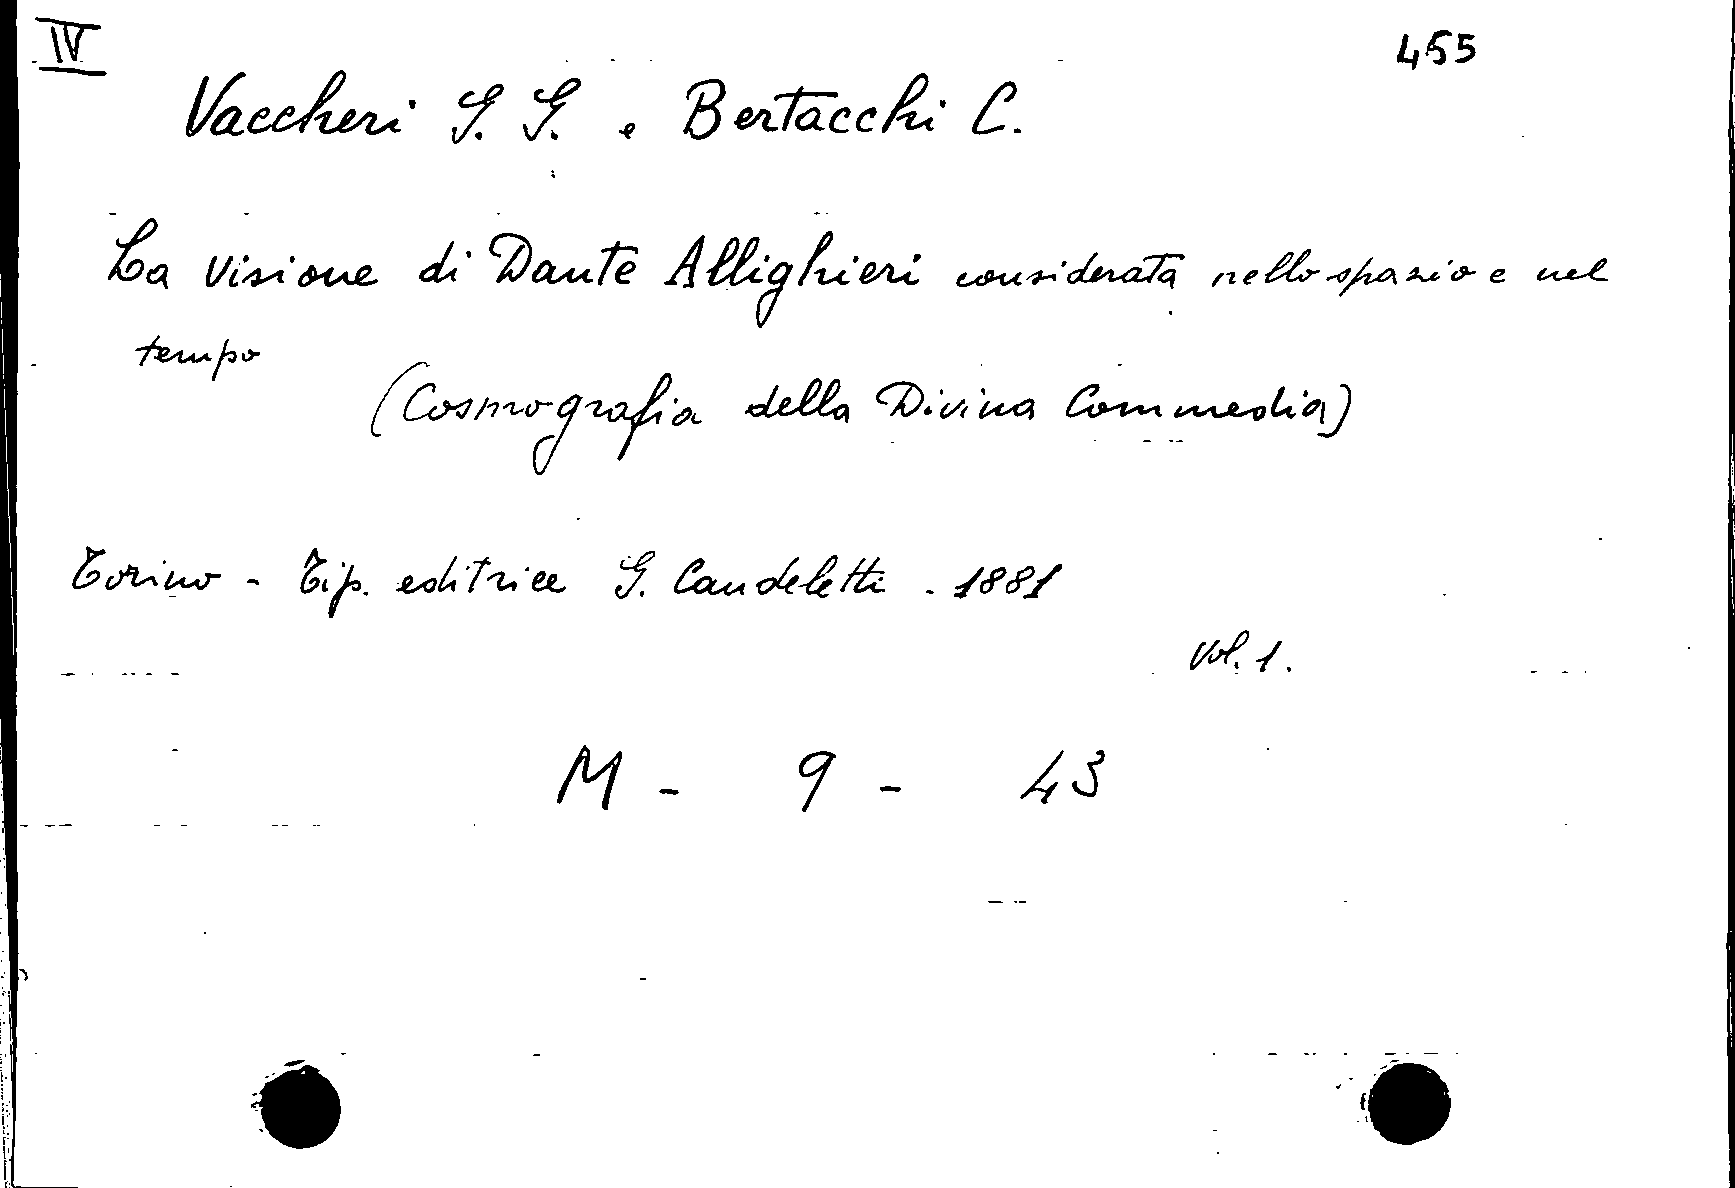 IV
455
Vaccheri G. G. e Bertacchi C.
La visione di Dante Allighieri considerata nello spazio e nel
tempo
(Cosmografia della Divina Commedia)
Torino - Tip. editrice G. Candeletti - 1881
Vol. 1.
M - 9 - 43